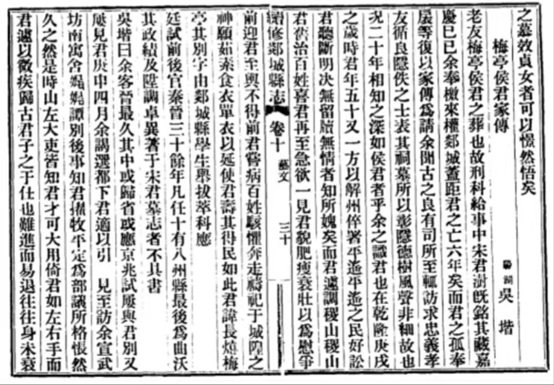 之墓效貞女者可以憬然悟矣
梅亭侯君家傳
陽湖 吳堦
老友梅亭侯君之葬也故刑科給事中宋君澍既銘其藏嘉
慶己巳余奉檄來權郯城葢距君之亡六年矣而君之孤奉
扆等復以家傳為請余聞古之良有司所至輒訪求忠義孝
友循良隱佚之士表其祠墓所以彰隱德樹風聲非細故也
況二十年相知之深如侯君者乎余之識君也在乾隆庚戌
之歲時君年五十又一方以解州倅署平遙平遙之民好訟
君聽斷明决無留牘無情者知所媿矣而君遽調稷山稷山
君舊治百姓喜君再至急欲一見君貌肥瘦衰壯以為慰爭
續修郯城縣志 卷十 藝文 三十
前迎君至輿不得前君嘗病百姓駭懼奔走禱祀于城隍之
神願茹素食衣單衣以延使君壽其得民如此君諱長熺梅
亭其別字由郯城縣學生舉拔萃科應
廷試前後官秦晉三十餘年凡任十有八州縣最後為曲沃
其政績及陞調卓異著于宋君墓志者不具書
吳堦曰余客晉最久其中或歸省或應京兆試屢與君別又
屢見君庚申四月余謁選都下君適以引 見至訪余宣武
坊南寓舍娓娓譚別後事知君擬牧平定為部議所格悵然
久之然是時山左大吏皆知君才可大用倚君如左右手而
君遽以微疾歸古君子之于仕也難進而易退往往身未衰